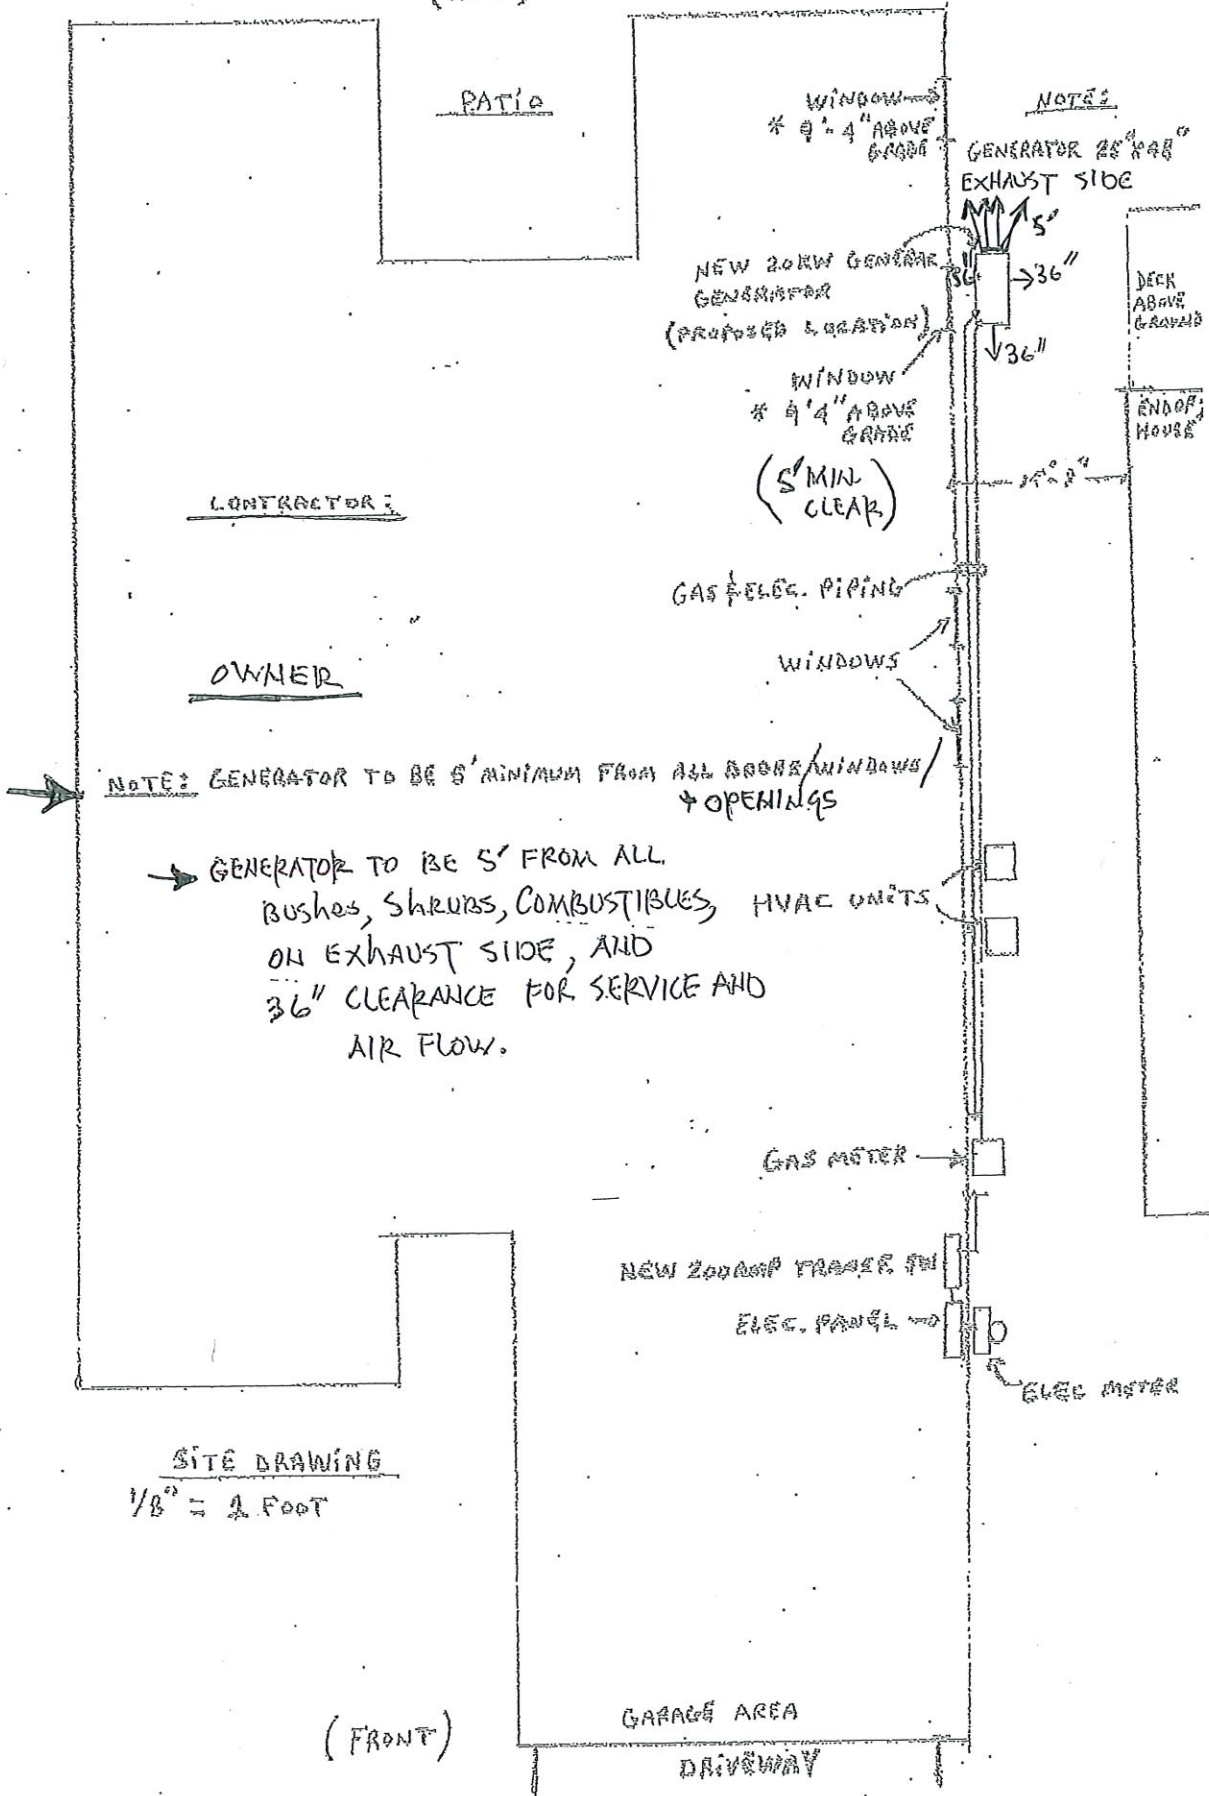 PATIO
WINDOW
* 9'-4" ABOVE
GRADE
NOTE:
GENERATOR 25"X48"
EXHAUST SIDE
5'
NEW 20KW GENERAC
GENERATOR
(PROPOSED LOCATION)
36"
36"
36"
DECK
ABOVE
GROUND
WINDOW
* 9'4" ABOVE
GRADE
(5' MIN.
CLEAR)
END OF
HOUSE
CONTRACTOR:
GAS & ELEC. PIPING
WINDOWS
OWNER
NOTE: GENERATOR TO BE 5' MINIMUM FROM ALL DOORS/WINDOWS/
+ OPENINGS
GENERATOR TO BE 5' FROM ALL
BUSHES, SHRUBS, COMBUSTIBLES,
ON EXHAUST SIDE, AND
36" CLEARANCE FOR SERVICE AND
AIR FLOW.
HVAC UNITS
GAS METER
NEW 200AMP TRANSF. SW
ELEC. PANEL
ELEC METER
SITE DRAWING
1/8" = 1 FOOT
(FRONT)
GARAGE AREA
DRIVEWAY